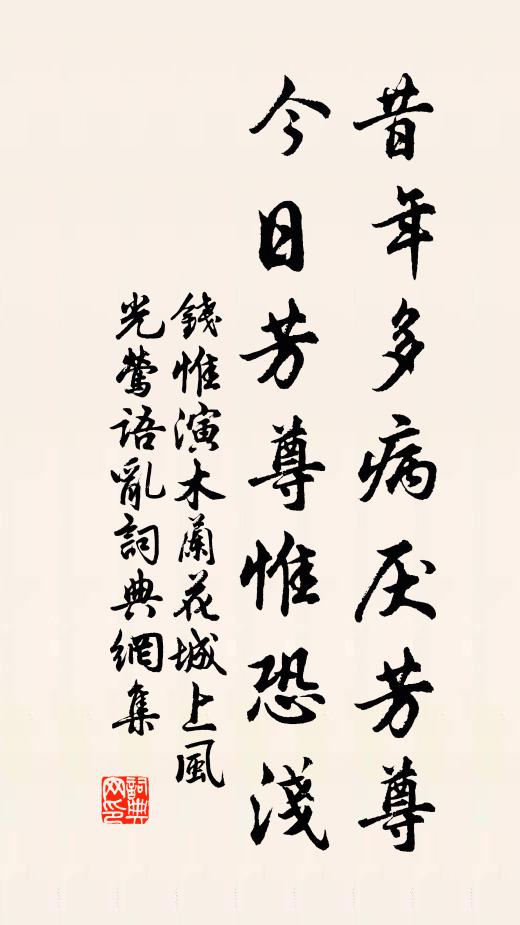 昔年多病厌芳尊
今日芳尊惟恐淺
錢惟演木蘭花城上風
光鶯語亂詞典網集
詞典
网印